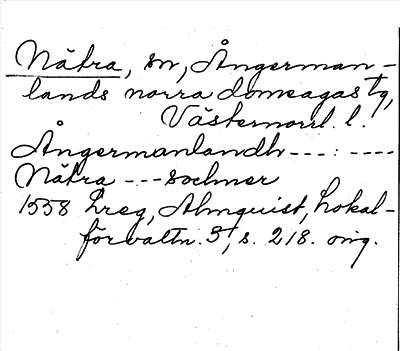 Nätra, sn, Ångerman-
lands norra domsagas tg,
Västernorrl. l.
Ångermanlandh ---:----
Nätra --- sochner
1558 Lreg, Almquist, Lokal-
förvaltn. 3, s. 218. orig.